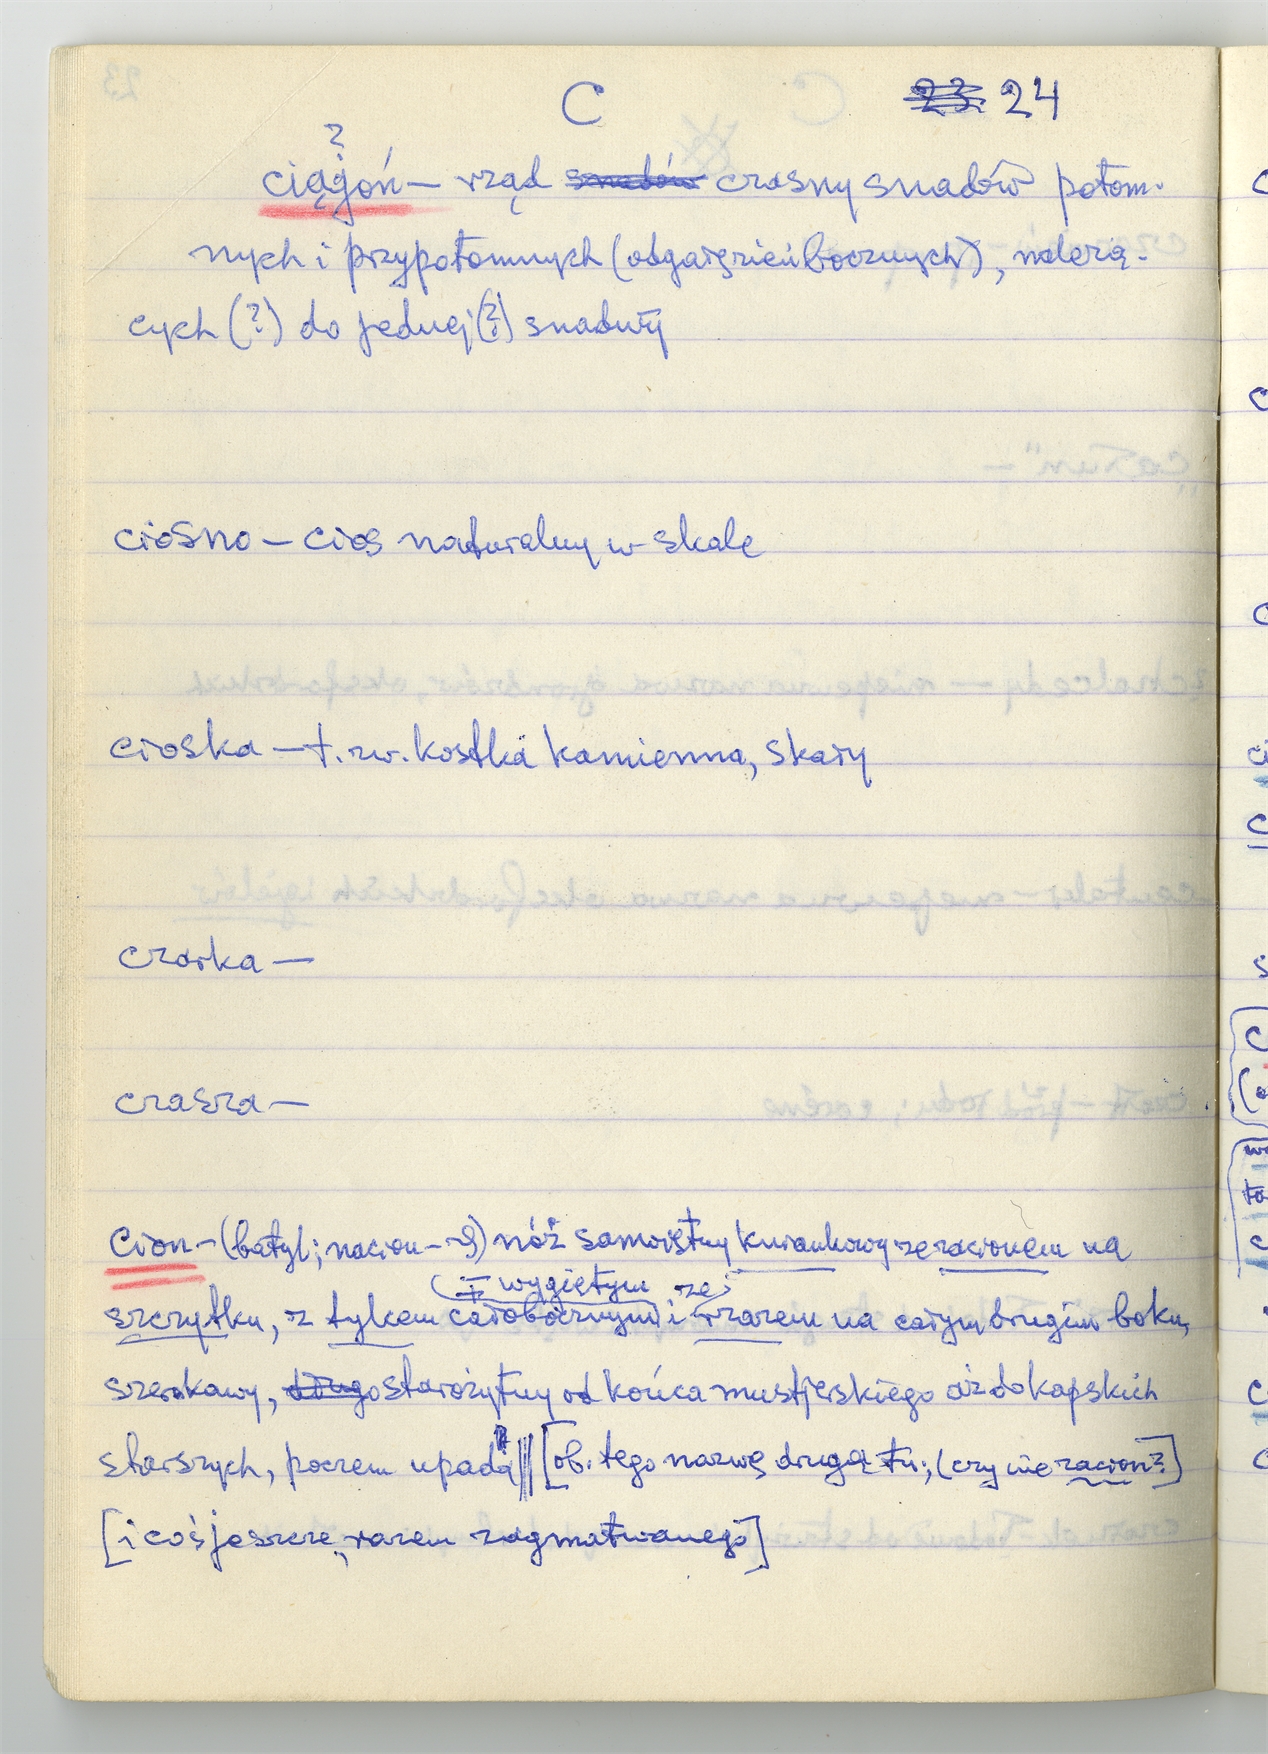 C ~~23.~~ 24
?
ciągoń – rząd ~~snadów~~ czasny snadów potom-
nych i przypotomnych (odgałęzień bocznych), należą-
cych (?) do jednej (?) snaduły
ciosno – cios naturalny w skale
cioska – t. zw. kostka kamienna, skały
czarka –
czasza –
cion – (batyl; nacion – ?) nóż samoistny kniaukowy ze zacionem na
(∓ wygiętym, ze)
szczytku, z tylcem całobocznym i razem na całym drugim boku,
szerokawy, ~~długo~~ starożytny od końca mustjerskiego aż do kapskich
starszych, poczem upada || [ob. tego nazwę drugą tu; (czy nie zacion?]
[i coś jeszcze, razem zagmatwanego]